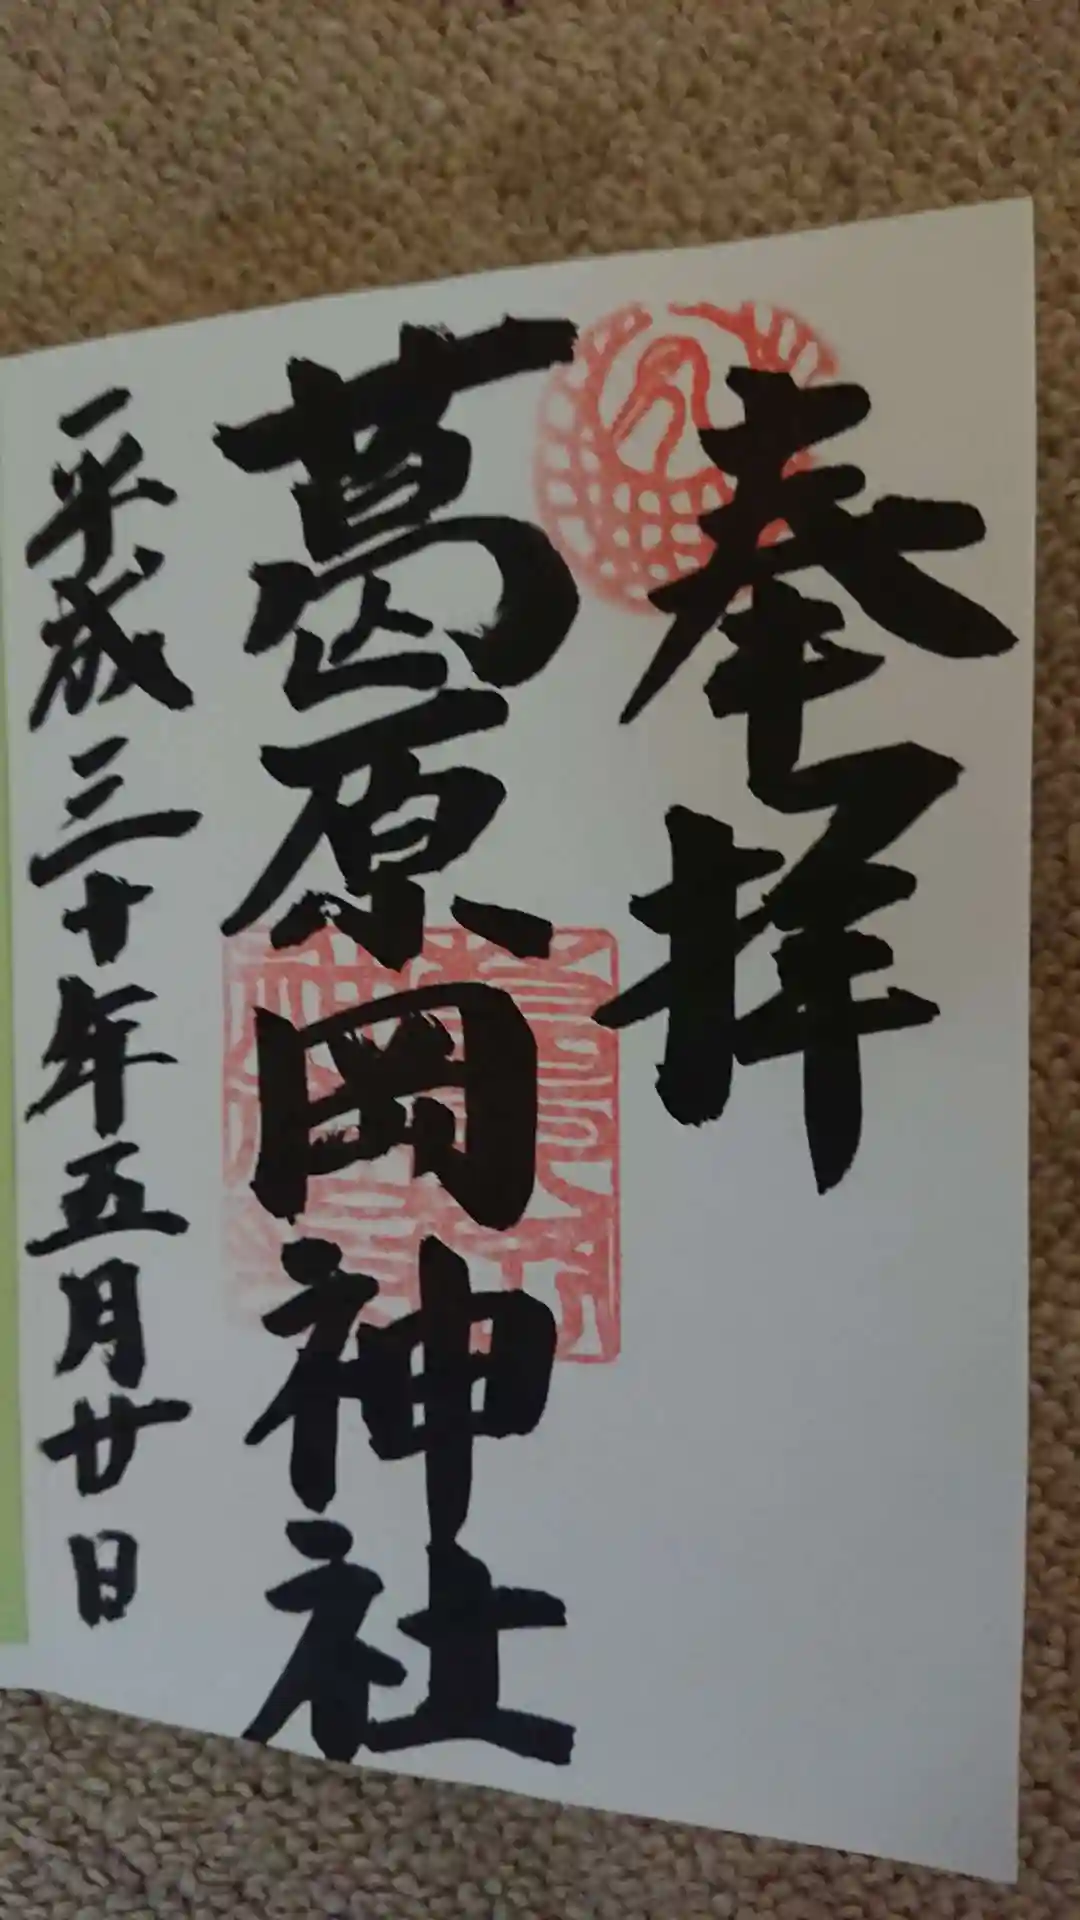 奉拝
葛原岡神社
平成三十年五月廿日